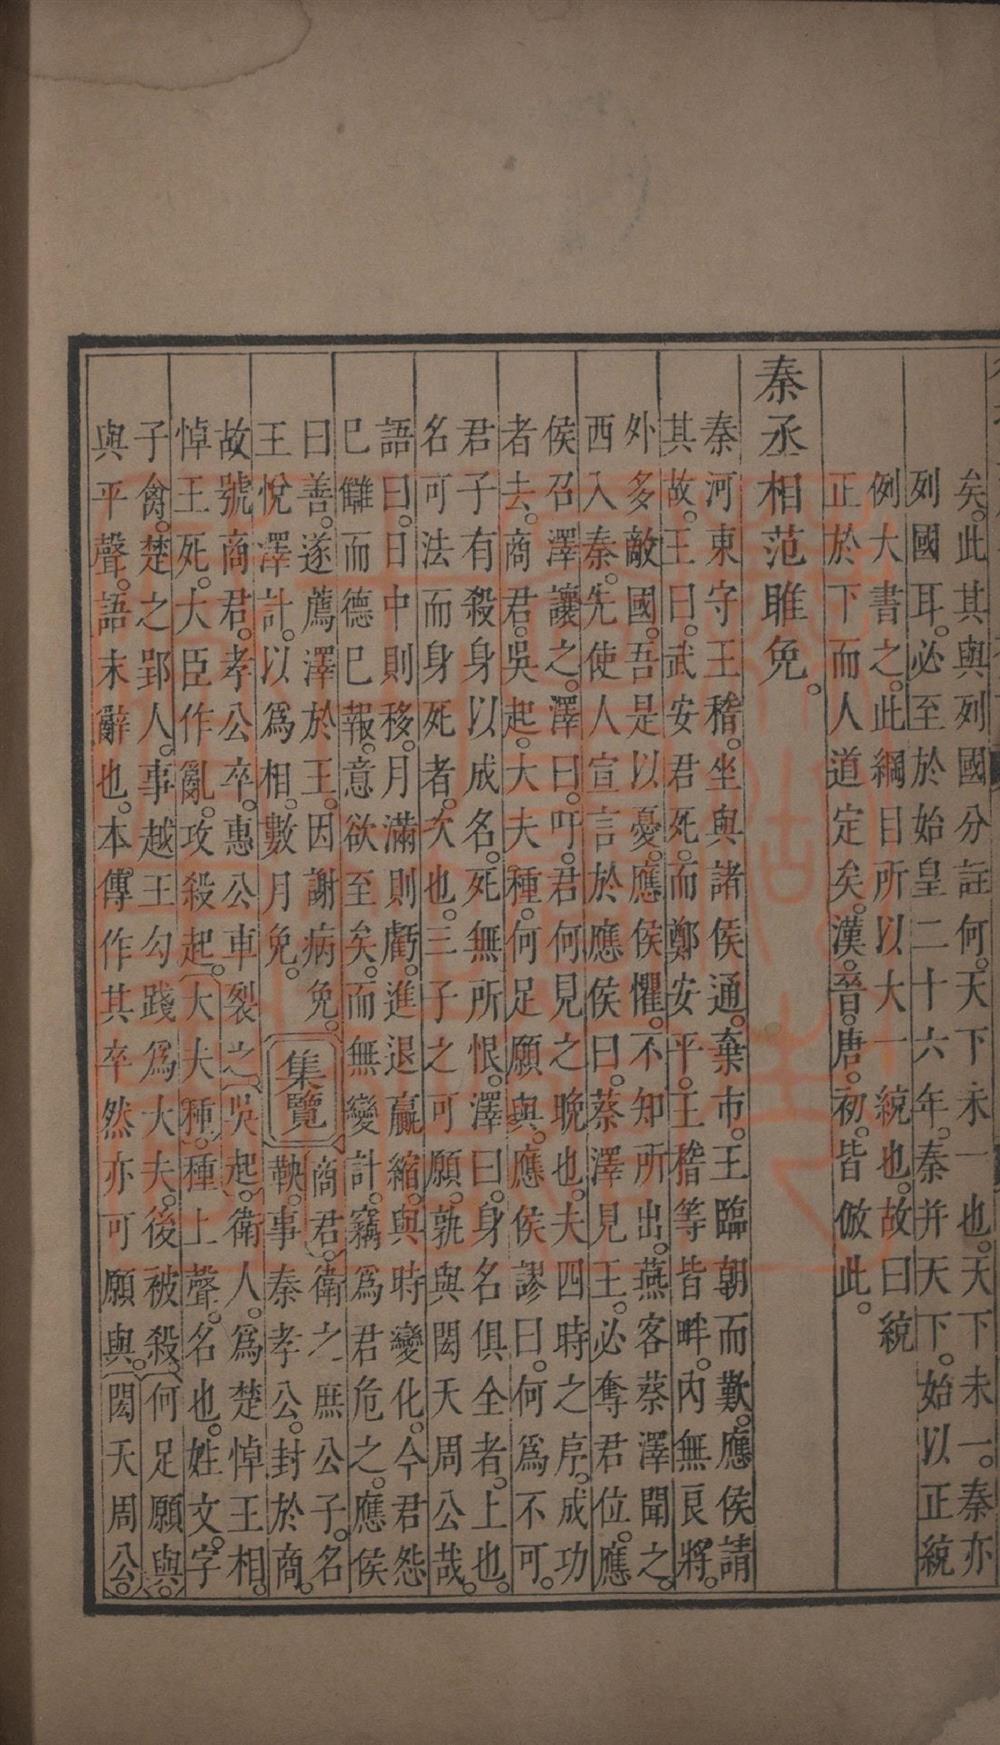 矣。此其與列國分註何。天下未一也。天下未一。秦亦
列國耳。必至於始皇二十六年。秦并天下。始以正統
例大書之。此綱目所以大一統也。故曰統
正於下而人道定矣。漢。晉。唐。初。皆倣此。
秦丞相范雎免。
秦河東守王稽。坐與諸侯通。棄市。王臨朝而歎。應侯請
其故。王曰。武安君死。而鄭安平。王稽等皆畔。內無良將。
外多敵國。吾是以憂。應侯懼。不知所出。燕客蔡澤聞之。
西入秦。先使人宣言於應侯曰。蔡澤見王。必奪君位。應
侯召澤讓之。澤曰。吁。君何見之晚也。夫四時之序。成功
者去。商君。吳起。大夫種。何足願與。應侯謬曰。何爲不可。
君子有殺身以成名。死無所恨。澤曰。身名俱全者。上也。
名可法而身死者。次也。三子之可願。孰與閎夭周公哉。
語曰。日中則移。月滿則虧。進退嬴縮。與時變化。今君怨
已讎而德已報。意欲至矣。而無變計。竊爲君危之。應侯
曰善。遂薦澤於王。因謝病免。集覽商君。衛之庶公子。名
王悅澤計。以爲相。數月免。鞅。事秦孝公。封於商。
故號商君。孝公卒。惠公車裂之。吳起。衛人。爲楚悼王相。
悼王死。大臣作亂。攻殺起。大夫種。種上聲。名也。姓文。字
子禽。楚之郢人。事越王勾踐爲大夫。後被殺。何足願與。
與平聲。語末辭也。本傳作其卒然亦可願與。閎夭周公。